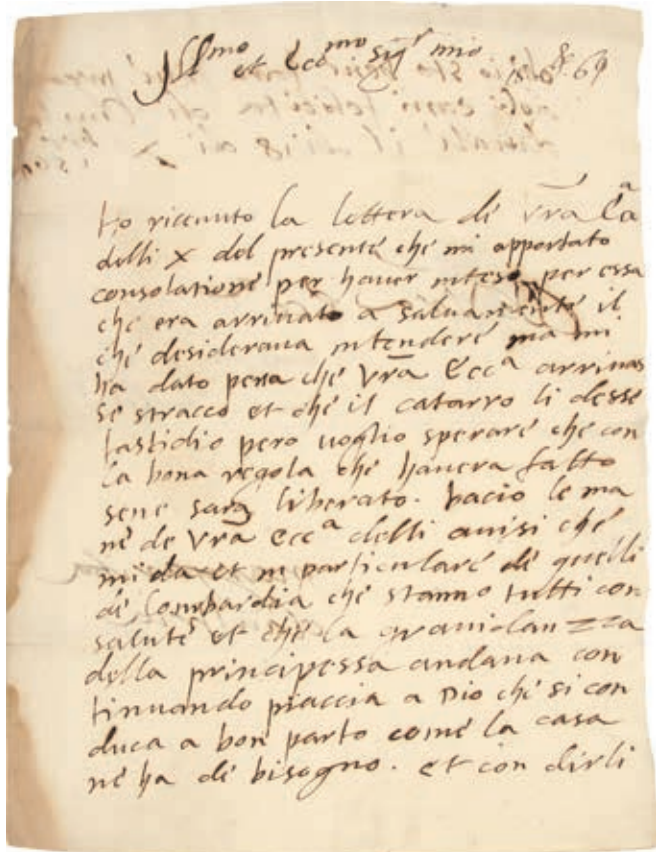 Ill^mo et Ecc^mo sig^r mio
Ho riceuuto la lettera de vrã Ecc^a
delli X del presente che mi apportato
consolatione per hauer inteso per essa
che era arriuato a saluamente il
che desideraua intendere ma mi
ha dato pena che vrã Ecc^a arriuas
se stracco et che il catarro li desse
fastidio pero uoglio sperare che con
la bona regola che hauera fatto
sene sara liberato. bacio le ma
ne de vrã Ecc^a delli auisi che
mi da et in particulare de quelli
de Lombardia che stanno tutti con
salute et che la grauidanzza
della principessa andaua con
tinuando piaccia a Dio che si con
duca a bon parto come la casa
ne ha de bisogno. et con dirli